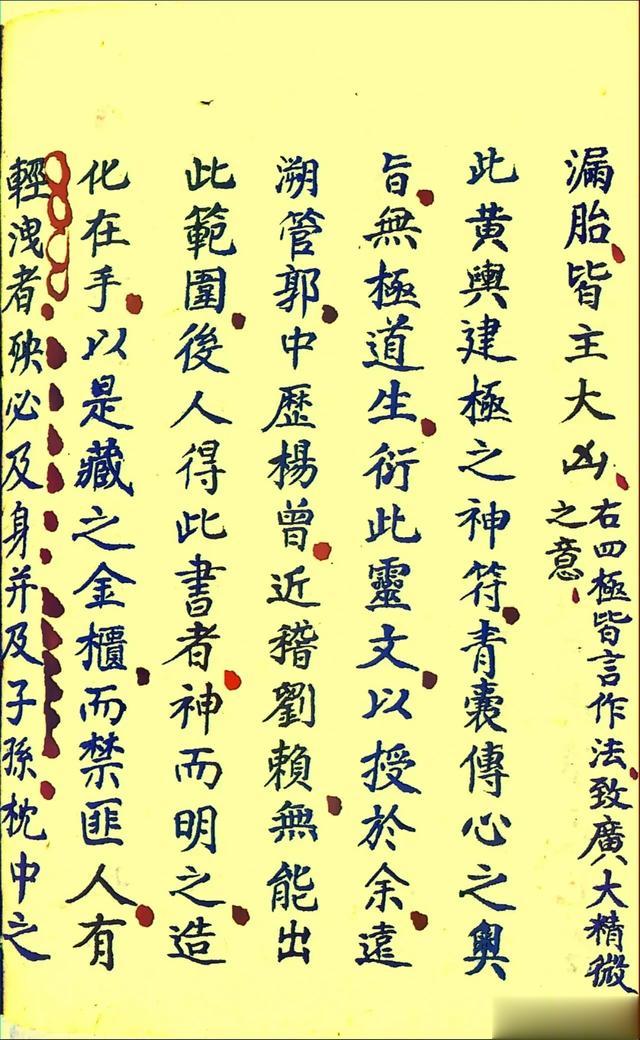 漏胎皆主大凶右四極皆言作法致廣大精微
之意
此黃輿建極之神符青囊傳心之奧
旨無極道生衍此靈文以授於余遠
溯管郭中歷楊曾近稽劉賴無能出
此範圍後人得此書者神而明之造
化在手以是藏之金櫃而禁匪人有
輕洩者殃必及身并及子孫枕中之